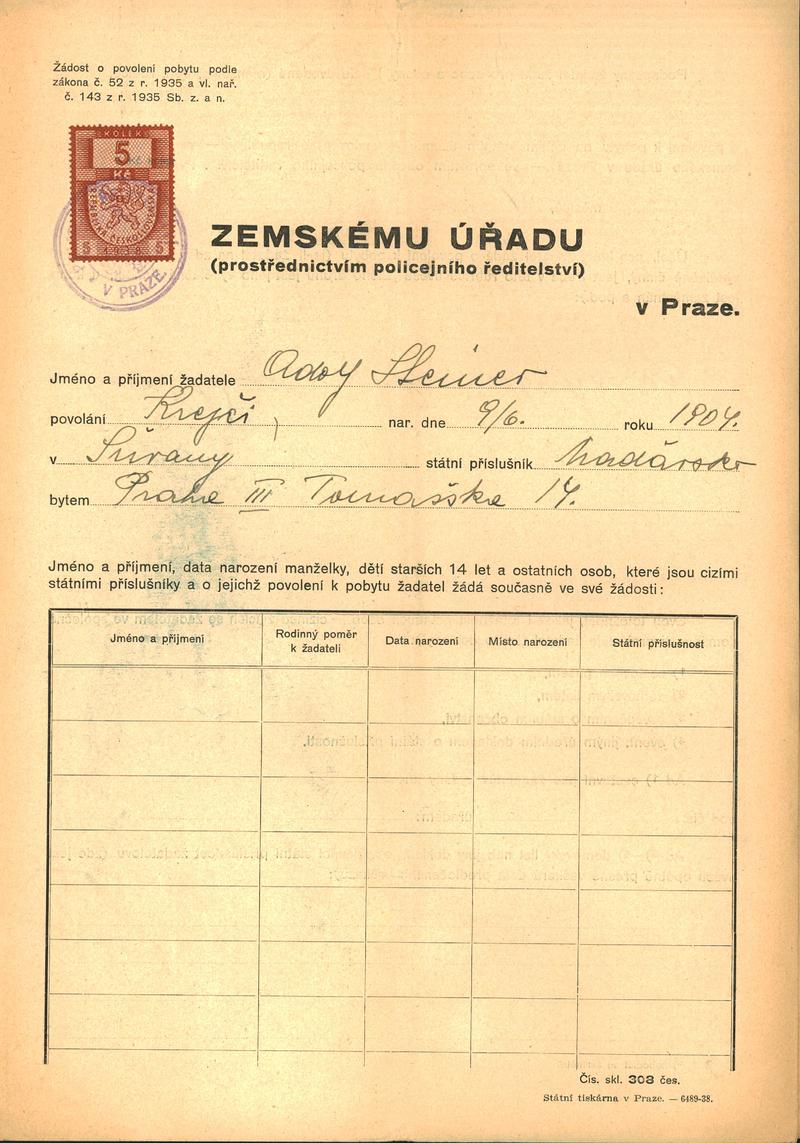 Žádost o povolení pobytu podle
zákona č. 52 z r. 1935 a vl. nař.
č. 143 z r. 1935 Sb. z. a n.
KOLEK
5
Kč
REPUBLIKA ČESKOSLOVENSKÁ
5 5
V PRAZE
ZEMSKÉMU ÚŘADU
(prostřednictvím policejního ředitelství)
v Praze.
Jméno a příjmení žadatele Adolf Steiner
povolání Krejčí nar. dne 9/6. roku 1904.
v Šurany státní příslušník Maďarsko
bytem Praha III Tomašska 14.
Jméno a příjmení, data narození manželky, dětí starších 14 let a ostatních osob, které jsou cizími
státními příslušníky a o jejichž povolení k pobytu žadatel žádá současně ve své žádosti:
Jméno a příjmení Rodinný poměr k žadateli Data narození Místo narození Státní příslušnost
Čís. skl. 303 čes.
Státní tiskárna v Praze. — 6489-38.